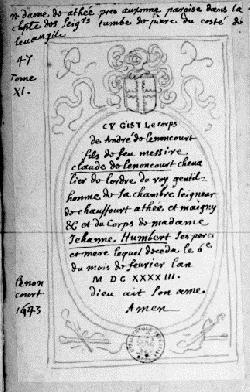 n. dame. de athée pres auxonne paroise dans la
chapelle des seigrs tumbe de pierre du costé de
leuangile
47
Tome
XI.
CY GIST Le corps
de André de Lenoncourt
fils de feu messire
claude de Lenoncourt cheua
lier de lordre du roy gentil
homme de sa chambre seigneur
de chauffourt athée, et maigny
&c et du Corps de madame
Jehanne. Humbert ses pere
et mere lequel deceda le 6e
du mois de feurier lan
M DC XXXX III.
dieu ait son ame.
Amen
Lenon
court
1643